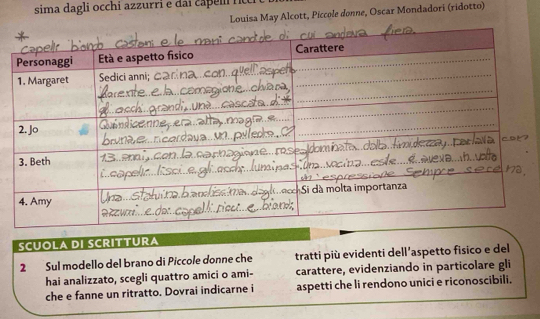 sima dagli occhi azzurri e dai capelli ricci e
Louisa May Alcott, Piccole donne, Oscar Mondadori (ridotto)
* capelli castani e le mani candide di cui andava fiera
Personaggi Età e aspetto fisico Carattere
1. Margaret Sedici anni; carina con quell'aspetto
fiorente e la carnagione chiara,
gl occhi grandi, una cascata di *
2. Jo Quindicenne, era alta, magra e
bruna, e ricordava un puledro.
3. Beth 13 anni, con la carnagione rosea dominata dalla timidezza, parlava con
i capelli lisci e gli occhi luminosi, una vocina esile e aveva in volto
un'espressione sempre serena.
4. Amy Una statuina biondissima dagli occhi Si dà molta importanza
azzurri e dai capelli ricci e biondi.
SCUOLA DI SCRITTURA
2 Sul modello del brano di Piccole donne che
hai analizzato, scegli quattro amici o ami-
che e fanne un ritratto. Dovrai indicarne i
tratti più evidenti dell'aspetto fisico e del
carattere, evidenziando in particolare gli
aspetti che li rendono unici e riconoscibili.